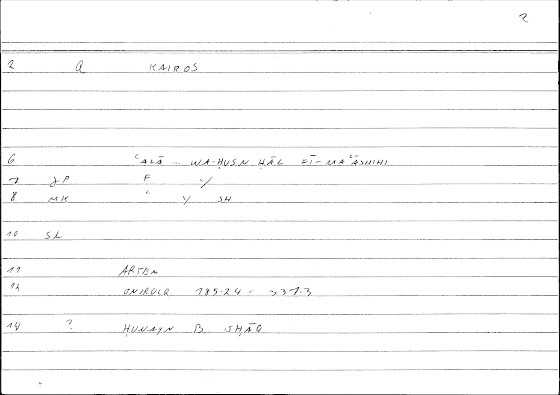 2
2 a KAIROS
6 ʿALĀ - WA-ḤUSN ḤĀL FĪ-MAʿĀSHIHI
7 JP F Y
8 MK ʿ Y SH
10 SL
11 ARTEM
12 ONIROCR 185.24 = 337.3
14 ? ḤUNAYN B ISḤĀQ